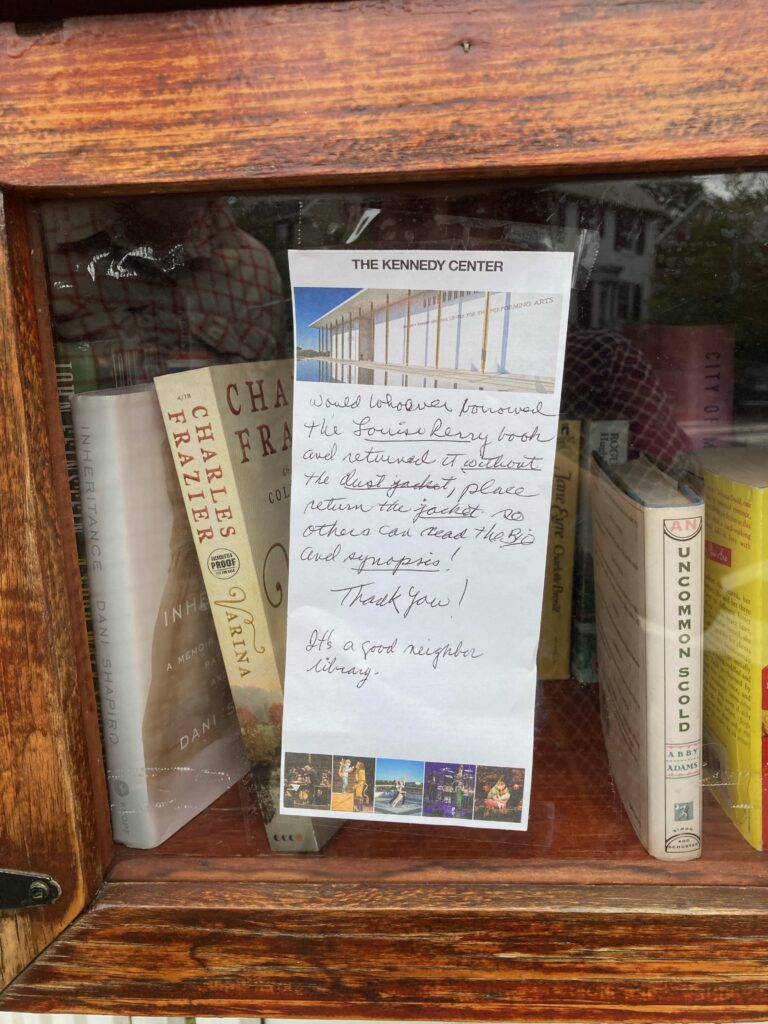 THE KENNEDY CENTER
CENTER FOR THE PERFORMING ARTS
Would whoever borrowed
the Louise Penny book
and returned it without
the dust jacket, please
return the jacket so
others can read the Bio
and synopsis!
Thank You!
It's a good neighbor
library.
INHERITANCE DANI SHAPIRO
INH
A MEMOIR
DANI S
4/18
CHARLES
FRAZIER
PROOF
VARINA
CHA
FRA
COL
Jane Eyre
CITY OF
AN
UNCOMMON SCOLD
ABBY
ADAMS
SIMON
AND
SCHUSTER